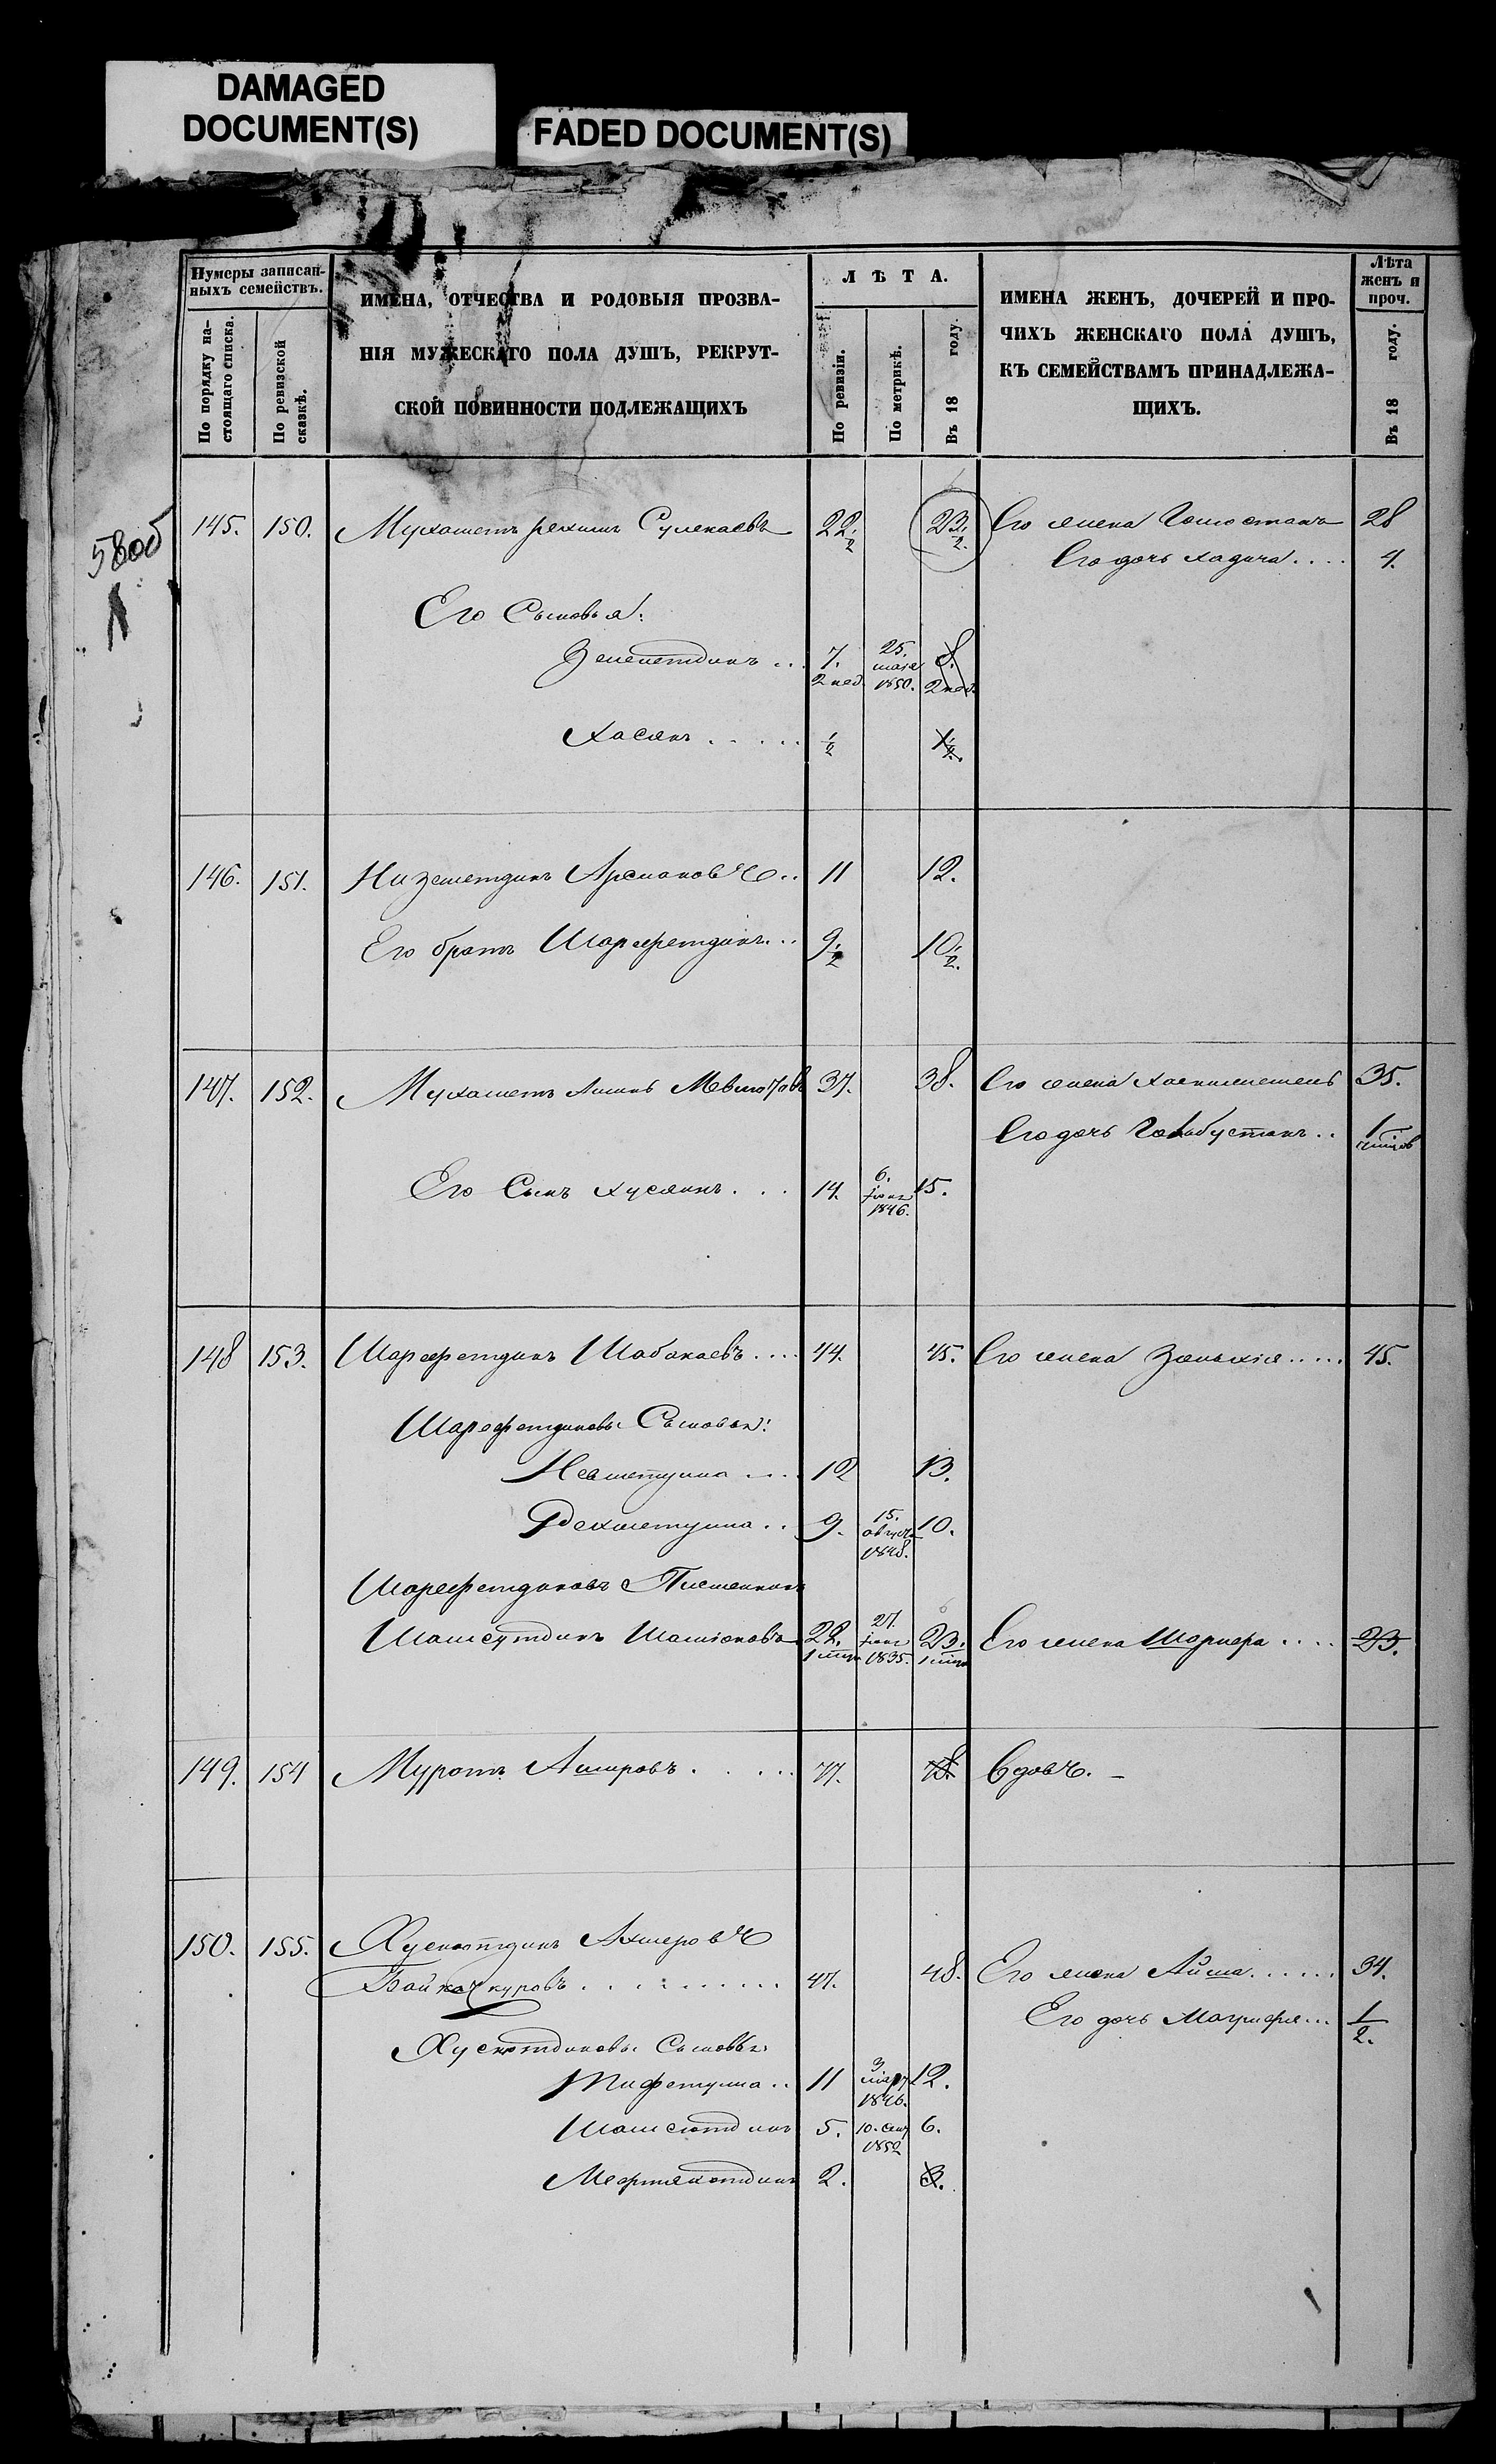 DAMAGED
DOCUMENT(S)
FADED DOCUMENT(S)
Нумеры записан-
ныхъ семействъ.
По порядку на-
стоящаго списка.
По ревизской
сказкѣ.
ИМЕНА, ОТЧЕСТВА И РОДОВЫЯ ПРОЗВА-
НІЯ МУЖЕСКАГО ПОЛА ДУШЪ, РЕКРУТ-
СКОЙ ПОВИННОСТИ ПОДЛЕЖАЩИХЪ
ЛѢТА.
По ревизіи.
По метрикѣ.
Въ 18 году.
ИМЕНА ЖЕНЪ, ДОЧЕРЕЙ И ПРО-
ЧИХЪ ЖЕНСКАГО ПОЛА ДУШЪ,
КЪ СЕМЕЙСТВАМЪ ПРИНАДЛЕЖА-
ЩИХЪ.
Лѣта
женъ и
проч.
Въ 18 году.
58об
145. 150. Мухаметъ рехимъ Сулекаевъ 22 1/2 23 1/2. Его жена 28
Его дочь хадича.... 4.
Его Сыновья:
7. 2 нед. 25. мая 1850. 8. 2 нед.
Хасянъ..... 1/2 1 1/2.
146. 151. Низаметдинъ 11 12.
Его братъ Шарафетдинъ... 9 1/2 10 1/2.
147. 152. Мухаметъ 37. 38. Его жена 35.
Его дочь Голюбустанъ.. 1
Его Сынъ хусяинъ... 14. 6. 1846. 15.
148 153. Шарафетдинъ Шабакаевъ.... 44. 45. Его жена..... 45.
Шарефетдиновы Сыновья:
Неаметулла.... 12 13.
Рехметулла.. 9. 15. август 1848. 10.
Шарефетдиновъ Племянникъ
Шамсутдинъ 22. 27. 1835. 23. Его жена.... 23.
149. 154 Муратъ Амировъ..... 77. 78. Вдовъ.
150. 155. Хуснютдинъ
Байкачкуровъ 47. 48. Его жена Айша...... 34.
Его дочь... 1/2.
Хуснютдиновы Сыновья:
11 3 мар 1846. 12.
Шамсютдинъ 5. 10. Сен 1852 6.
2. 3.